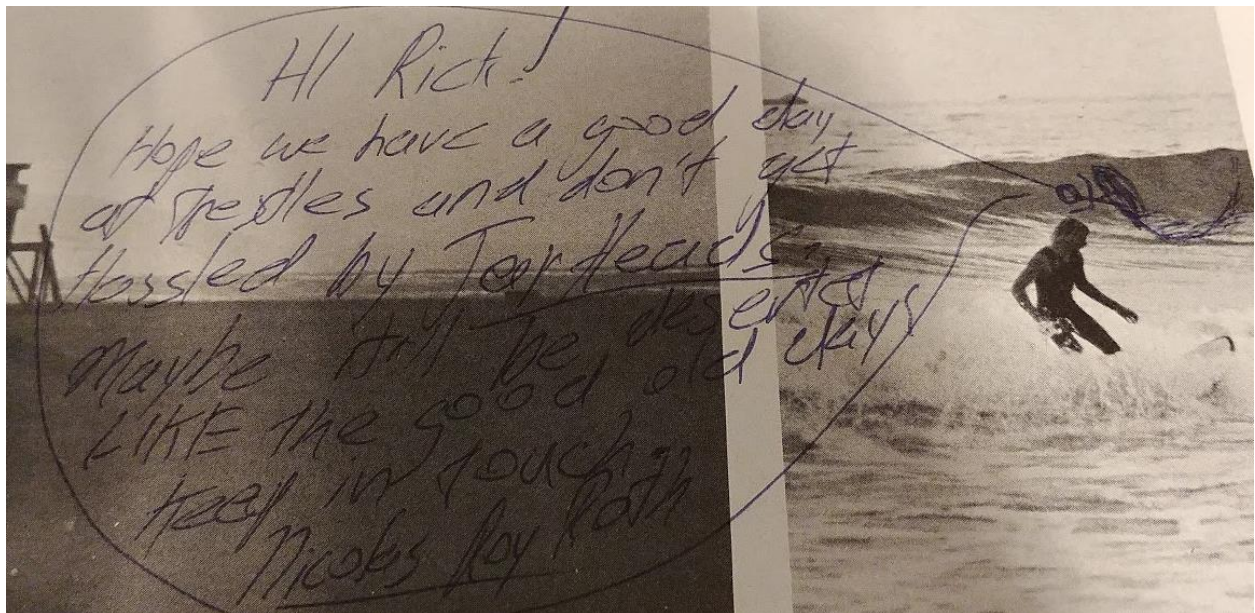 HI Rich!
Hope we have a good day
at Needles and don't get
Hassled by TarHeads.
Maybe it'll be deserted
LIKE the good old days
Keep in touch,
Nicolas Roy Roth